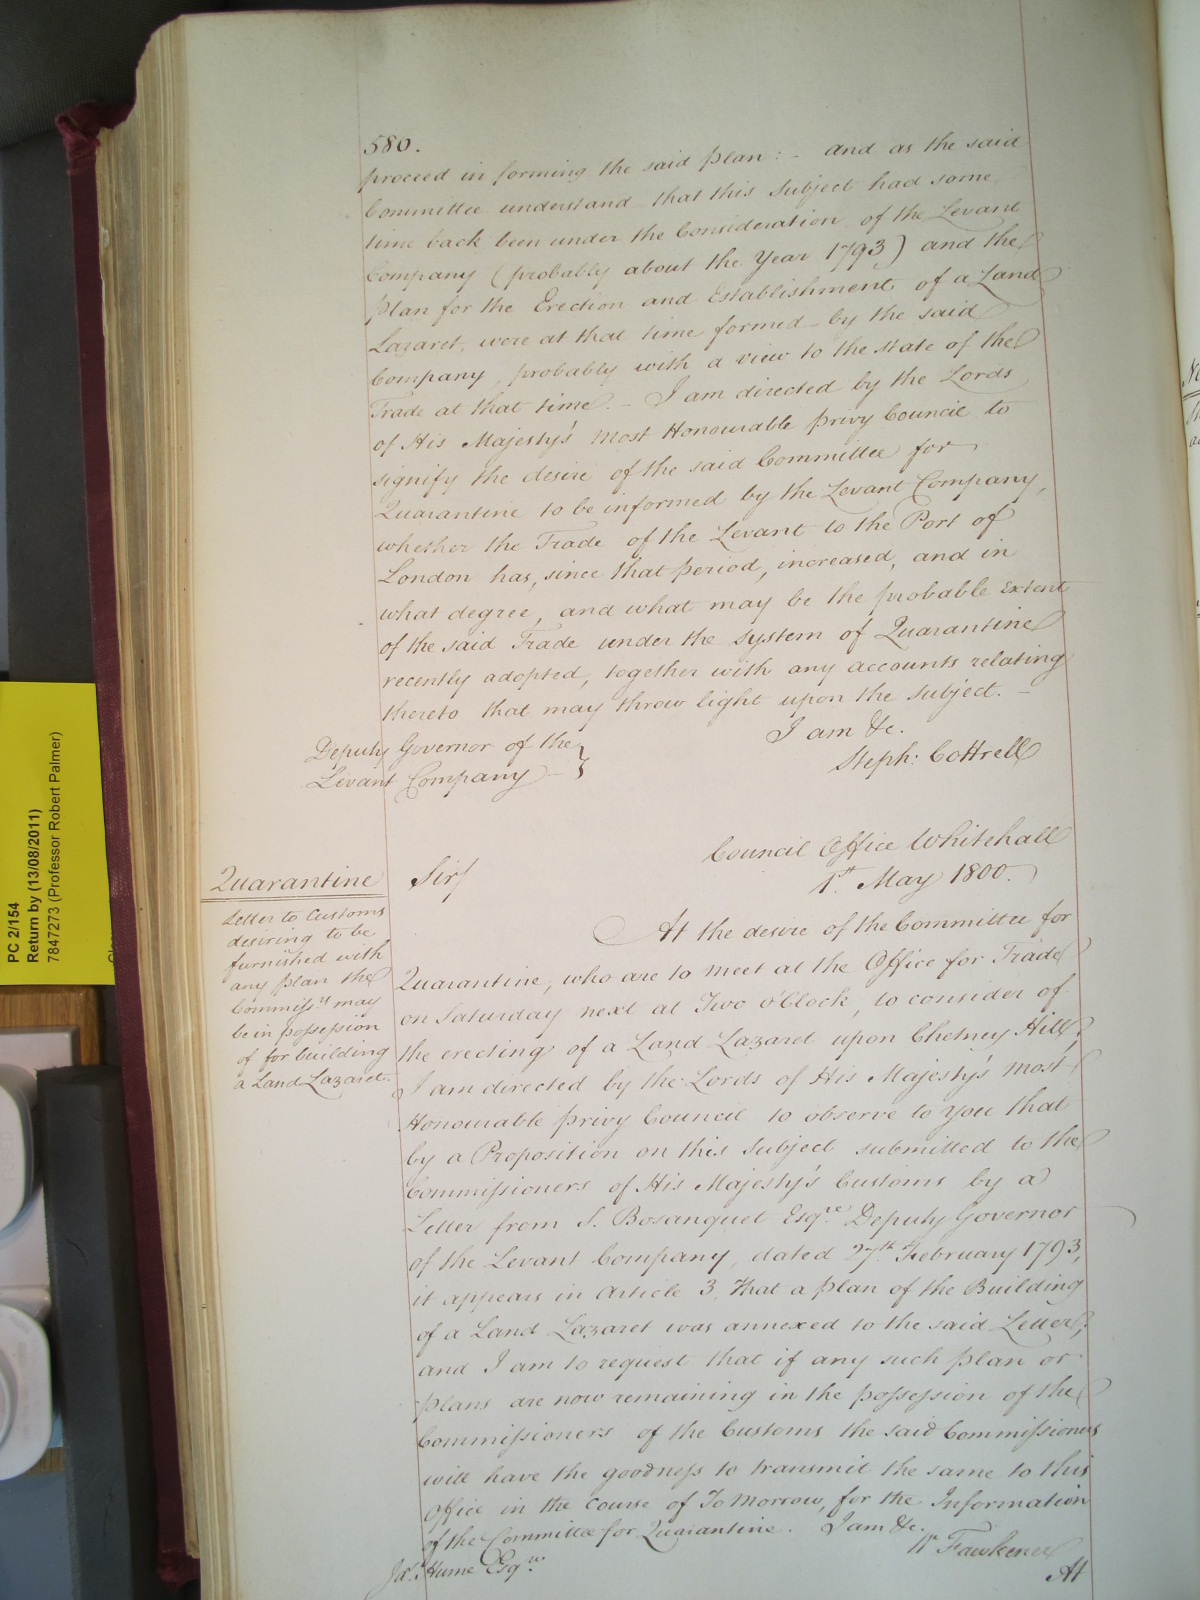 580.
proceed in forming the said plan : - and as the said
Committee understand that this Subject had some
time back been under the Consideration of the Levant
Company (probably about the Year 1793) and the
Plan for the Erection and Establishment of a Land
Lazaret, were at that time formed by the said
Company, probably with a view to the state of the
Trade at that time. - I am directed by the Lords
of His Majesty's most Honourable privy Council to
signify the desire of the said Committee for
Quarantine to be informed by the Levant Company,
whether the Trade of the Levant to the Port of
London has, since that period, increased, and in
what degree, and what may be the probable extent
of the said Trade under the System of Quarantine
recently adopted, together with any accounts relating
thereto that may throw light upon the subject. -
I am &c.
Steph: Cottrell
Deputy Governor of the
Levant Company -
Council Office Whitehall
1st May 1800.
Quarantine
Letter to Customs
desiring to be
furnished with
any plan the
Commissrs may
be in possession
of for building
a Land Lazaret.
Sir/
At the desire of the Committee for
Quarantine, who are to meet at the Office for Trade
on Saturday next at Two o'Clock, to consider of
the erecting of a Land Lazaret upon Chetney Hill,
I am directed by the Lords of His Majesty's most
Honourable privy Council to observe to you that
by a Proposition on this Subject submitted to the
Commissioners of His Majesty's Customs by a
Letter from S. Bosanquet Esqre Deputy Governor
of the Levant Company, dated 27th February 1793,
it appears in Article 3. that a plan of the Building
of a Land Lazaret was annexed to the said Letter,
and I am to request that if any such plan or
plans are now remaining in the possession of the
Commissioners of the Customs the said Commissioners
will have the goodness to transmit the same to this
Office in the course of To Morrow, for the Information
of the Committee for Quarantine. I am &c.
Wm Fawkener
Jas. Hume Esqre
At
PC 2/154
Return by (13/08/2011)
7847273 (Professor Robert Palmer)